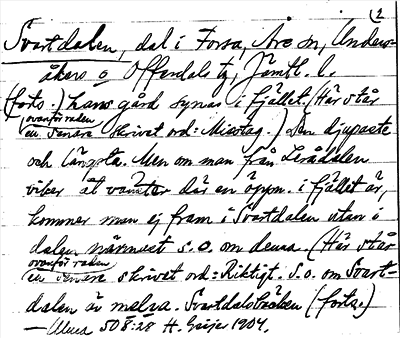 (2
Svartdalen, dal i Forsa, Åre sn, Unders-
åkers o Offerdals tg, Jämtl. l.
(forts.) hans gård synas i fjället. Här står
ovanför raden
en senare skrivet ord: Misstag.) Den djupaste
och längsta. Men om man från Lerådalen
viker åt vänster där en öppn. i fjället är,
kommer man ej fram i Svartdalen utan i
dalen närmest s.o. om denna. (Här står
ovanför raden
en senare skrivet ord: Riktigt. S.o. om Svart-
dalen är melra. Svartdalsbräcken (forts.)
50 8:28 H. Geijer 1904.